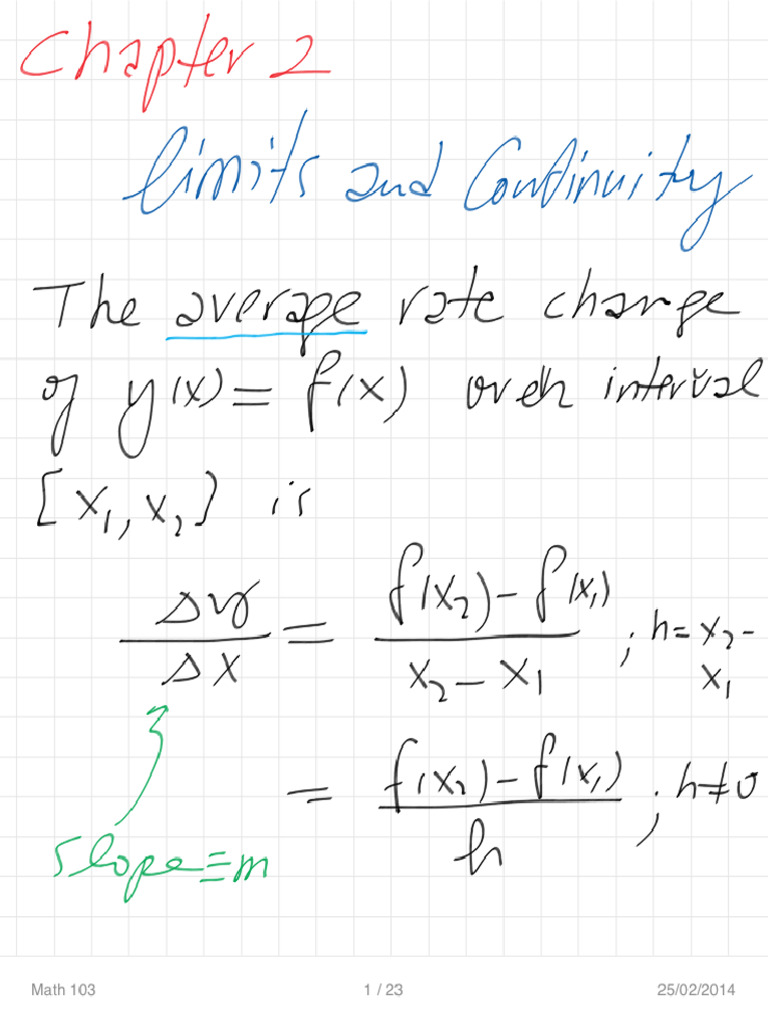 Chapter 2
limits and Continuity
The average rate change
of y(x) = f(x) over interval
[x₁, x₂] is
Δy/Δx = (f(x₂) - f(x₁))/(x₂ - x₁) ; h = x₂ - x₁
= (f(x₂) - f(x₁))/h ; h ≠ 0
slope ≡ m
Math 103 1 / 23 25/02/2014